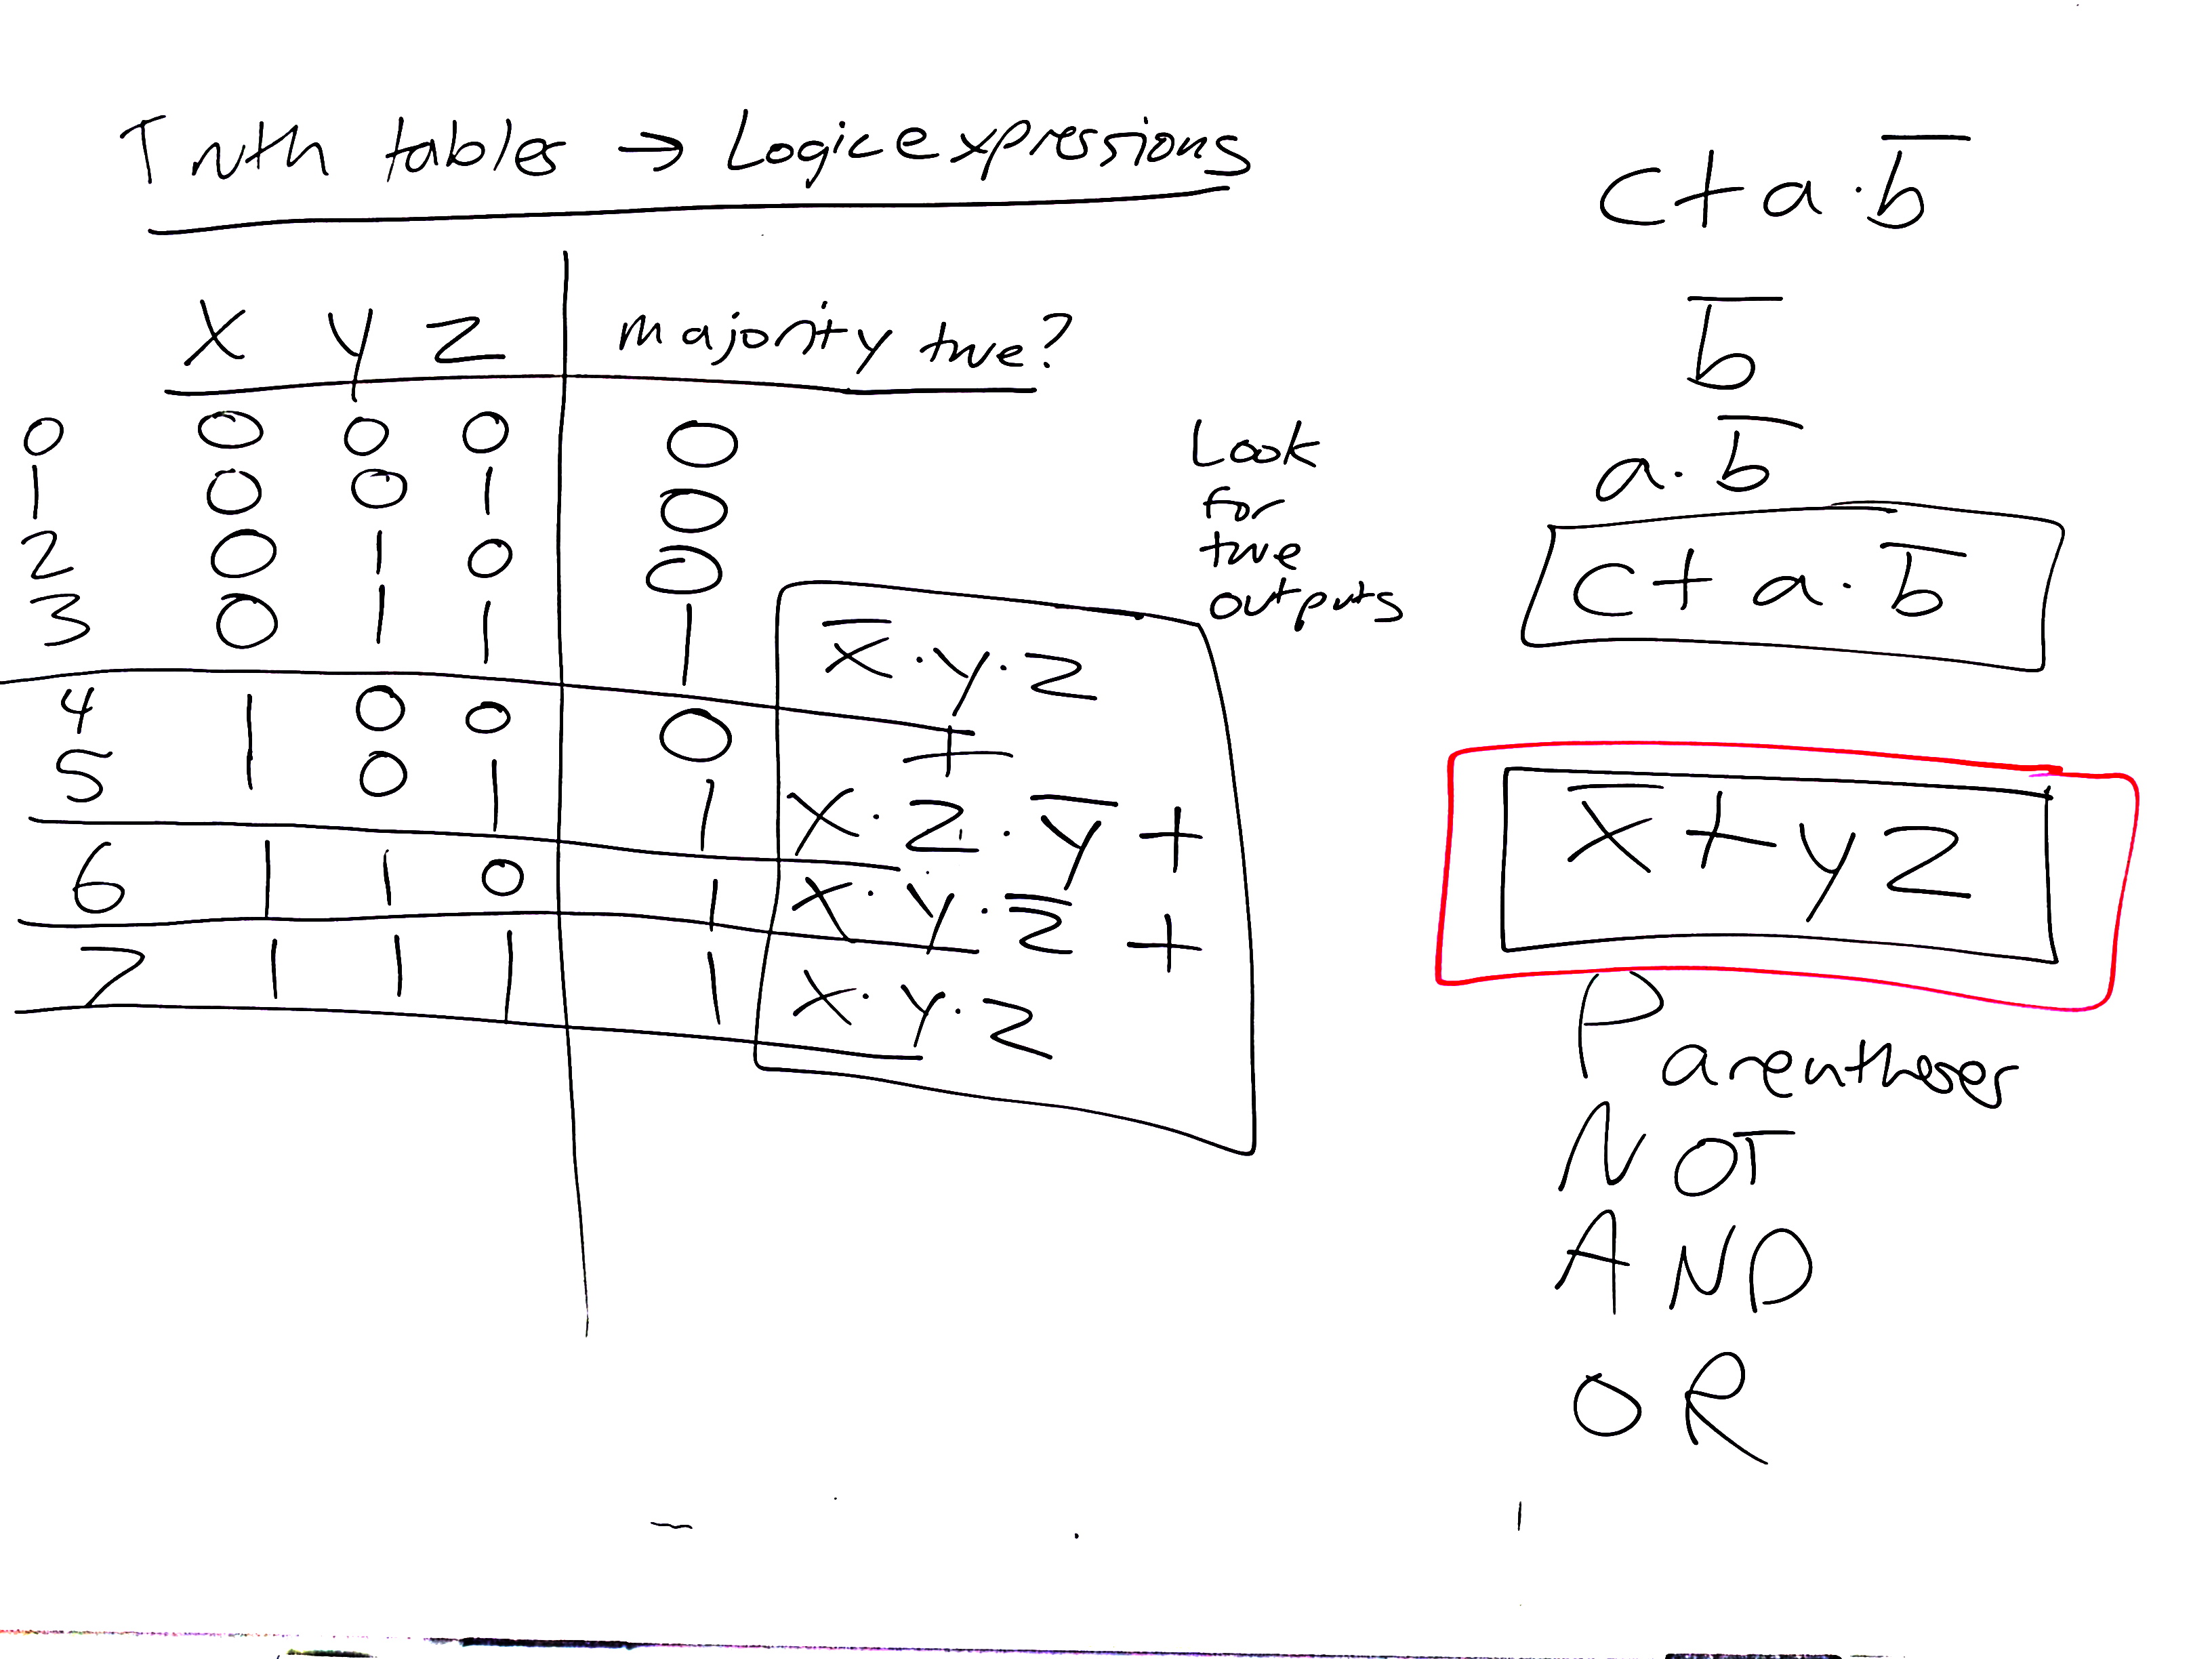 Truth tables → Logic expressions
X y Z majority true?
0 0 0 0 0
1 0 0 1 0
2 0 1 0 0
3 0 1 1 1 X̅·y·Z
+
4 1 0 0 0
5 1 0 1 1 X·Z·y̅ +
6 1 1 0 1 X·y·Z̅ +
7 1 1 1 1 X·y·Z
Look
for
true
outputs
c+a·b̅
b̅
a·b̅
c+a·b̅
X̅+yZ
Parentheses
NOT
AND
OR